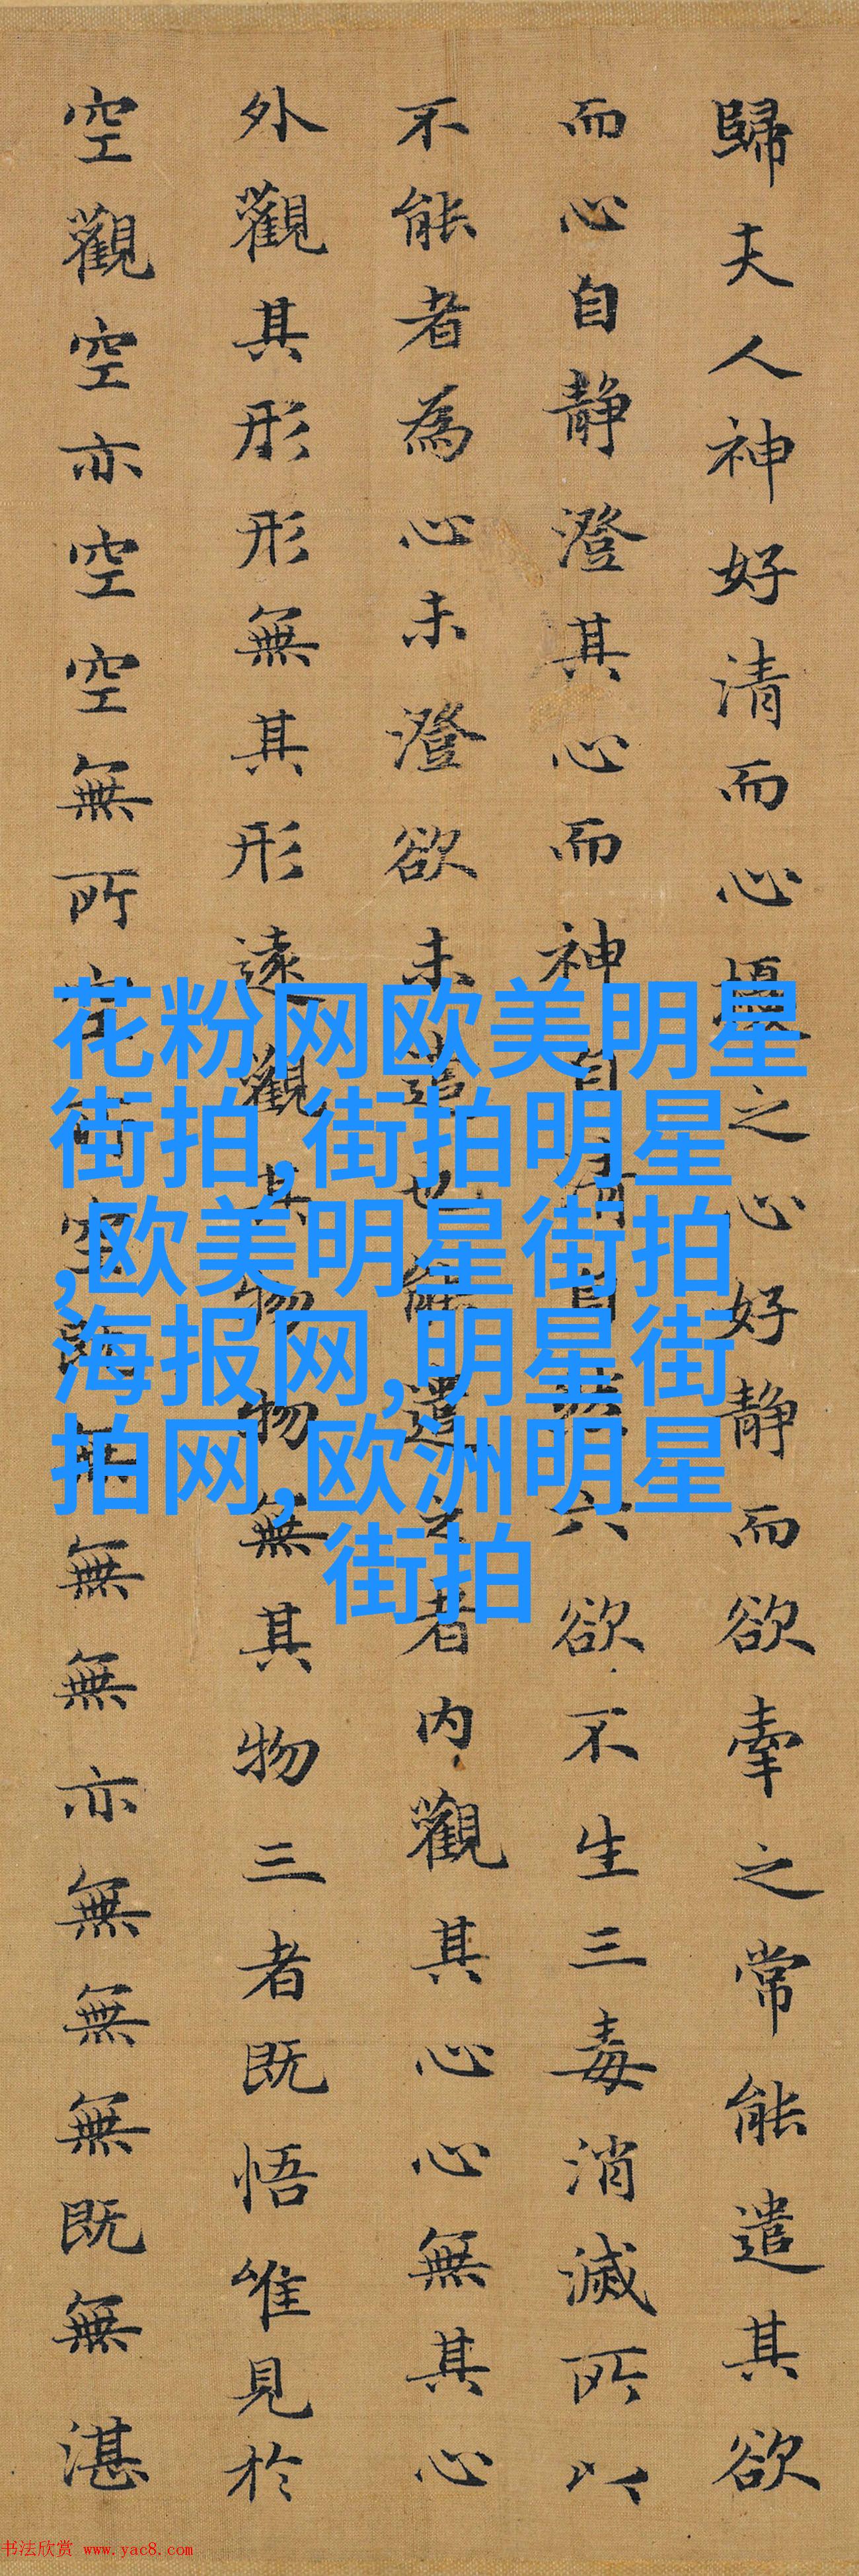 歸夫人神好清而心擾之心好静而欲牽之常能遣其欲
而心自静澄其心而神自清自然六欲不生三毒消滅所以
不能者為心未澄欲未遣也能遣之者内觀其心心無其心
外觀其形形無其形遠觀其物物無其物三者既悟唯見於
空觀空亦空空無所空所空既無無無亦無無無既無湛
花粉网欧美明星
街拍,街拍明星
,欧美明星街拍
海报网,明星街
拍网,欧洲明星
街拍
书法欣赏 www.yac8.com